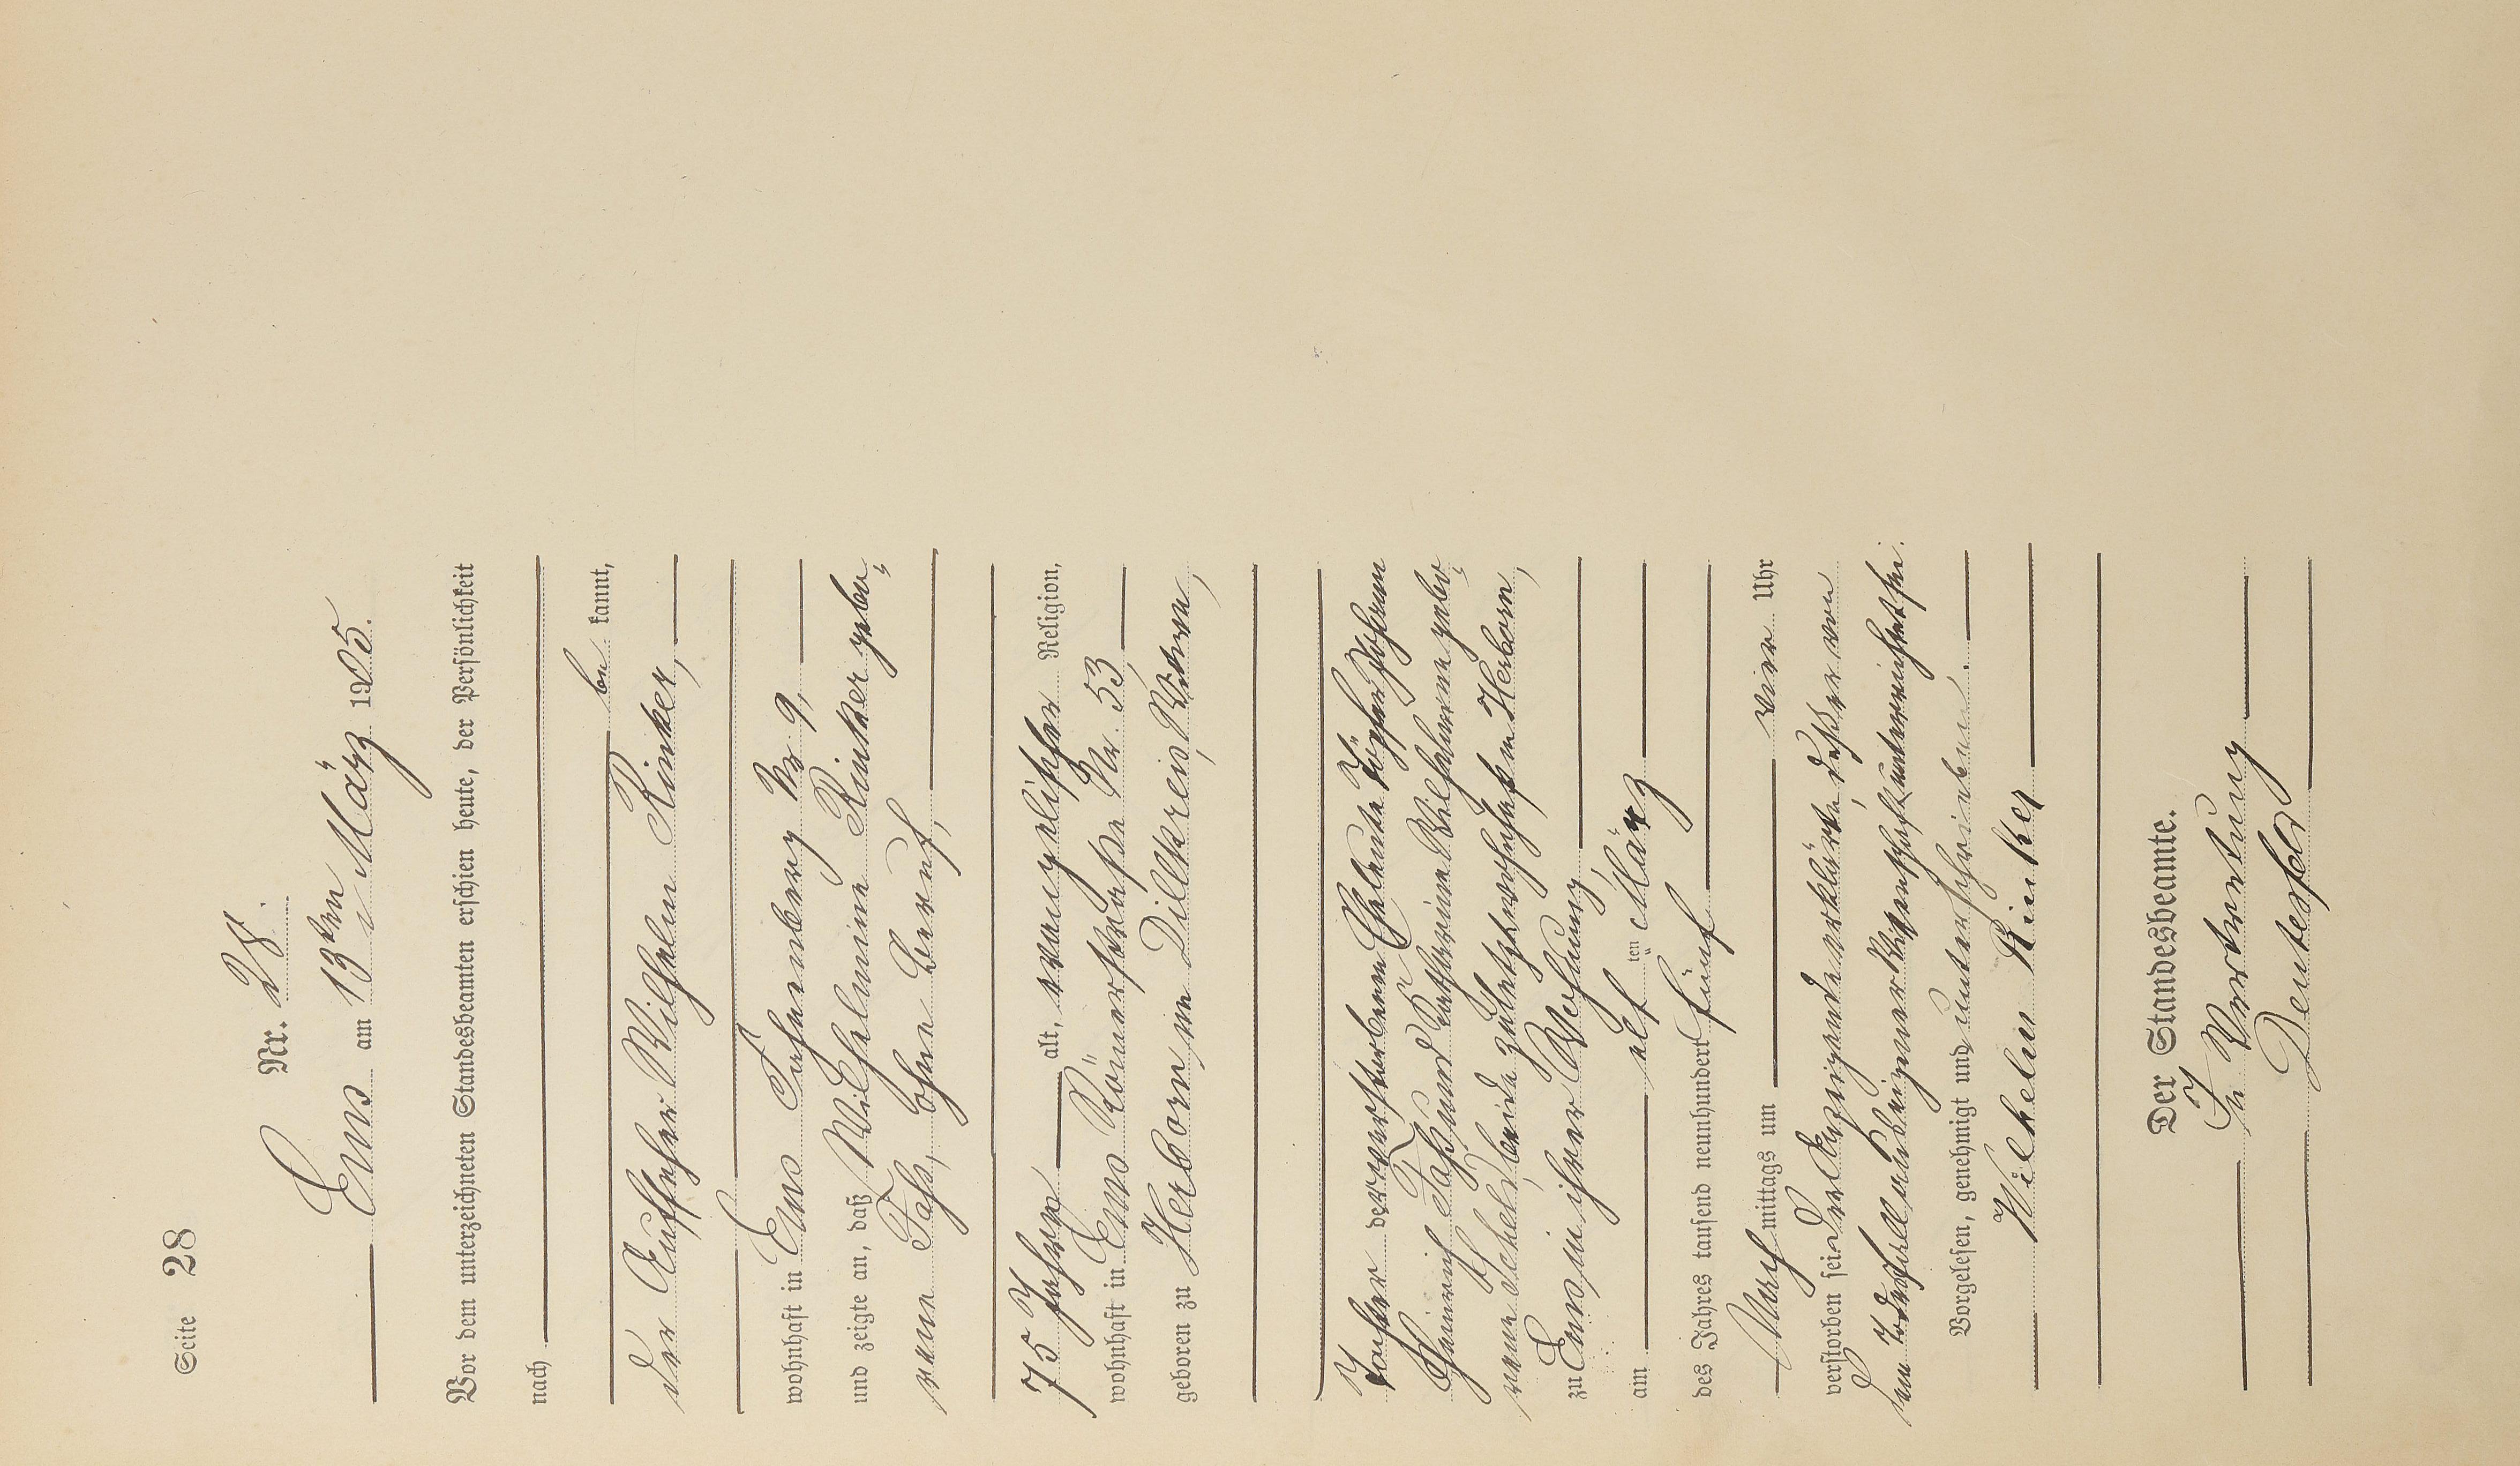 Seite 28
Nr. 28.
Ems am 13ten März 1905.
Vor dem unterzeichneten Standesbeamten erschien heute, der Persönlichkeit
nach
be kannt,
der Aufseher Wilhelm Rinker,
wohnhaft in Ems Nr 9,
und zeigte an, daß Wilhelmine Rinker gebo¬
rene ohne Beruf,
75 Jahre alt, evangelischer Religion,
wohnhaft in Ems Römerstraße Nr. 53,
geboren zu Herborn im Dillkreis, Witwe,
Tochter der verstorbenen Eheleute Johann
Heinrich und Katharina Wilhelmine gebo¬
rene beide zuletzt wohnhaft in Herborn,
zu Ems in ihrer Wohnung,
am elf ten März
des Jahres tausend neunhundert fünf
Nach mittags um vier Uhr
verstorben sei. Der Anzeigende erklärte, daß er von
dem Todesfall aus eigener Wissenschaft unterrichtet sei.
Vorgelesen, genehmigt und unterschrieben.
Wilhelm Rinker
Der Standesbeamte.
In Vertretung